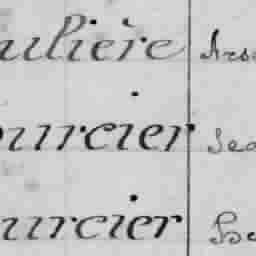 ulière Ars
ourcier Jea
urcier He